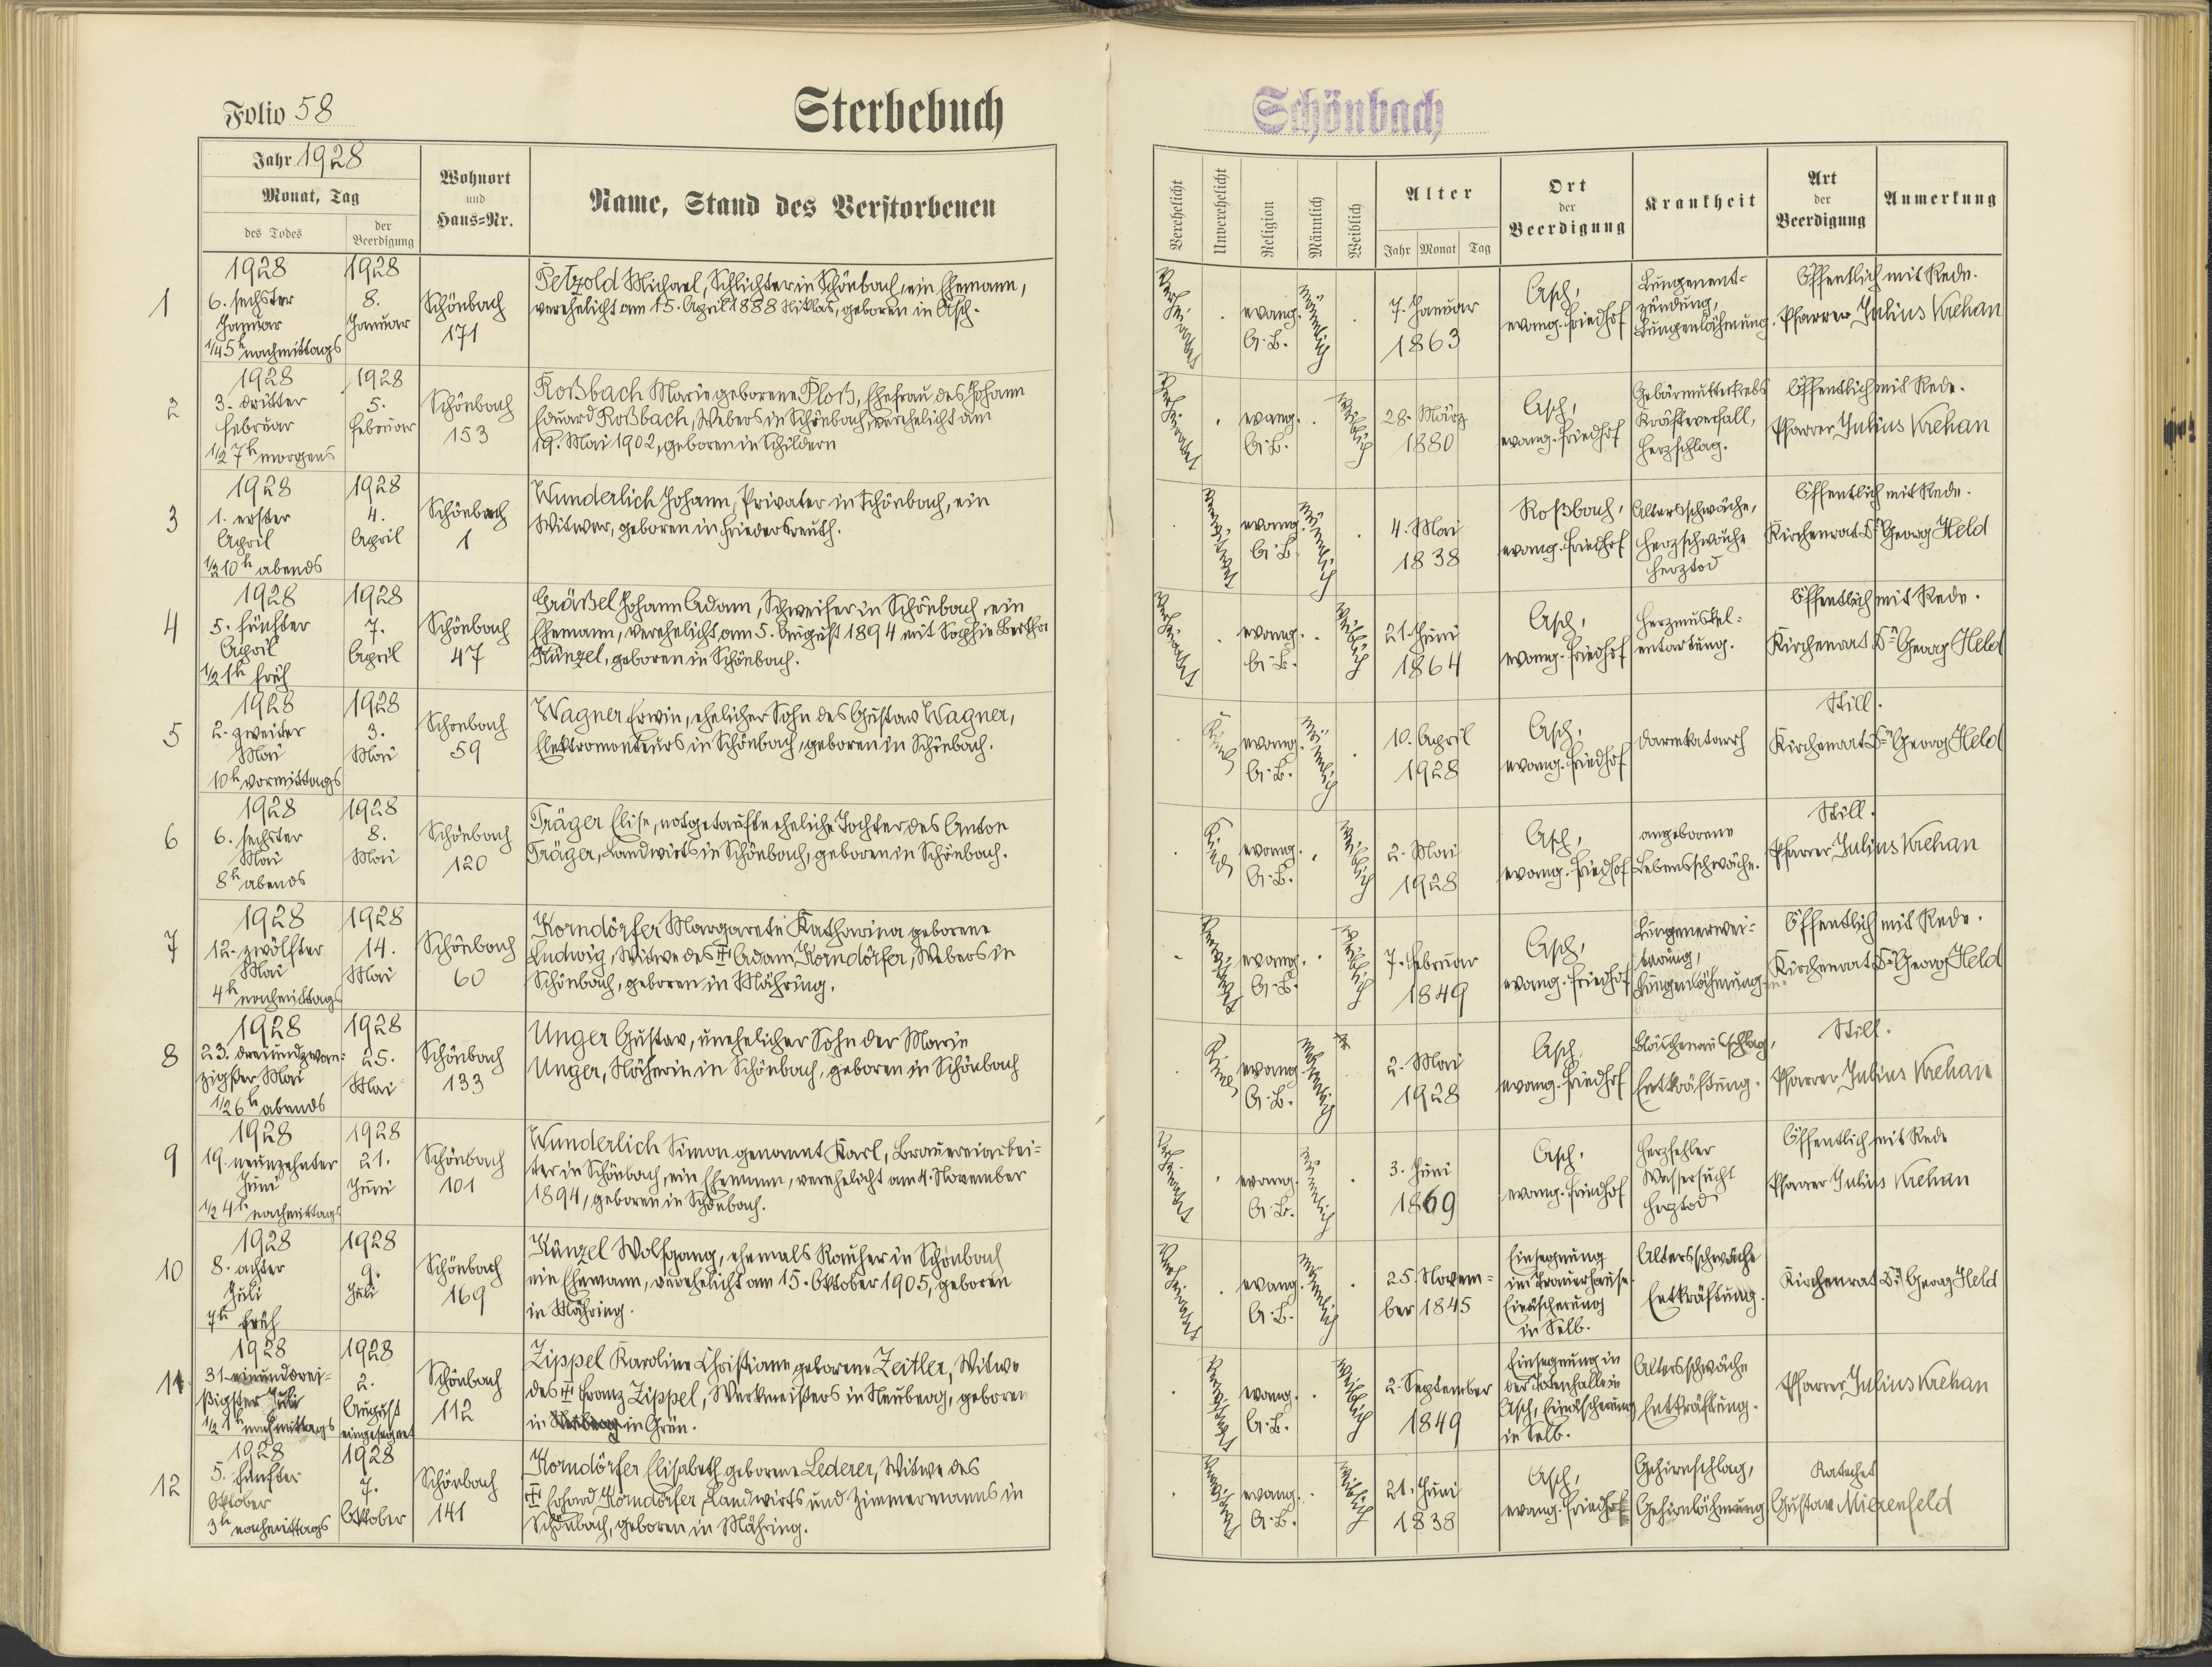 Folio 58
Sterbebuch
Schönbach
Jahr 1928
Monat, Tag
des Todes
der Beerdigung
Wohnort
und
Haus=Nr.
Name, Stand des Verstorbenen
Verehelicht
Unverehelicht
Religion
Männlich
Weiblich
Alter
Jahr Monat Tag
Ort
der
Beerdigung
Krankheit
Art
der
Beerdigung
Anmerkung
1
1928
6. sechster
Januar
1/4 5 h nachmittags
1928
8.
Januar
Schönbach
171
Petzold Michael, Schlichter in Schönbach, ein Ehemann,
verehelicht am 15. April 1888 Niklas, geboren in Asch.
evang.
A. B.
männlich
7. Januar
1863
Asch,
evang. Friedhof
Lungenent-
zündung,
Lungenlähmung.
Öffentlich mit Rede.
Pfarrer Julius Krehan
2
1928
3. dritter
Februar
1/2 7 h morgens
1928
5.
Februar
Schönbach
153
Roßbach Marie geborene Ploß, Ehefrau des Johann
Eduard Roßbach, Webers in Schönbach, verehelicht am
19. Mai 1902, geboren in Schildern
evang.
A. B.
weiblich
28. März
1880
Asch,
evang. Friedhof
Gebärmutterkrebs
Kräfteverfall,
Herzschlag.
Öffentlich mit Rede.
Pfarrer Julius Krehan
3
1928
1. erster
April
1/2 10 h abends
1928
4.
April
Schönbach
1
Wunderlich Johann, Privater in Schönbach, ein
Witwer, geboren in Friedersreuth.
evang.
A. B.
männlich
4. Mai
1838
Roßbach,
evang. Friedhof
Altersschwäche,
Herzschwäche
Herztod
Öffentlich mit Rede.
Kirchenrat Dr. Georg Held
4
1928
5. fünfter
April
1/2 1 h früh
1928
7.
April
Schönbach
47
Gräßel Johann Adam, Schweifer in Schönbach, ein
Ehemann, verehelicht am 5. August 1894 mit Sophie Bertha
Künzel, geboren in Schönbach.
evang.
A. B.
weiblich
21. Juni
1864
Asch,
evang. Friedhof
Herzmuskel-
entartung.
Öffentlich mit Rede.
Kirchenrat Dr. Georg Held
5
1928
2. zweiter
Mai
10 h vormittags
1928
3.
Mai
Schönbach
59
Wagner Erwin, ehelicher Sohn des Gustav Wagner,
Elektromonteurs in Schönbach, geboren in Schönbach.
Kind
evang.
A. B.
männlich
10. April
1928
Asch,
evang. Friedhof
Darmkatarrh
Still.
Kirchenrat Dr. Georg Held
6
1928
6. sechster
Mai
8 h abends
1928
8.
Mai
Schönbach
120
Träger Elise, notgetaufte eheliche Tochter des Anton
Träger, Landwirts in Schönbach, geboren in Schönbach.
Kind
evang.
A. B.
weiblich
2. Mai
1928
Asch,
evang. Friedhof
angeborene
Lebensschwäche.
Still.
Pfarrer Julius Krehan
7
1928
12. zwölfter
Mai
4 h nachmittags
1928
14.
Mai
Schönbach
60
Korndörfer Margarete Katharina geborene
Ludwig, Witwe des ☩ Adam Korndörfer, Webers in
Schönbach, geboren in Mähring.
evang.
A. B.
weiblich
7. Februar
1849
Asch,
evang. Friedhof
Lungenerwei-
terung,
Lungenlähmung
Öffentlich mit Rede.
Kirchenrat Dr. Georg Held
8
1928
23. dreiundzwan-
zigster Mai
1/2 6 h abends
1928
25.
Mai
Schönbach
133
Unger Gustav, unehelicher Sohn der Marie
Unger, Näherin in Schönbach, geboren in Schönbach
Kind
evang.
A. B.
männlich
2. Mai
1928
Asch,
evang. Friedhof
Bläschenausschlag,
Entkräftung.
Still.
Pfarrer Julius Krehan
9
1928
19. neunzehnter
Juni
1/2 4 h nachmittags
1928
21.
Juni
Schönbach
101
Wunderlich Simon genannt Karl, Brauereiarbei-
ter in Schönbach, ein Ehemann, verehelicht am 4. November
1894, geboren in Schönbach.
evang.
A. B.
männlich
3. Juni
1869
Asch,
evang. Friedhof
Herzfehler
Wassersucht
Herztod
Öffentlich mit Rede
Pfarrer Julius Krehan
10
1928
8. achter
Juli
7 h früh
1928
9.
Juli
Schönbach
169
Künzel Wolfgang, ehemals Rauher in Schönbach
ein Ehemann, verehelicht am 15. Oktober 1905, geboren
in Mähring.
evang.
A. B.
männlich
25. Novem-
ber 1845
Einsegnung
im Trauerhause.
Einäscherung
in Selb.
Altersschwäche
Entkräftung.
Kirchenrat Dr. Georg Held
11
1928
31. einunddrei-
ßigster Juli
1/2 1 h nachmittags
1928
2.
August
eingesegnet
Schönbach
112
Zippel Karoline Christiane geborene Zeitler, Witwe
des ☩ Franz Zippel, Werkmeisters in Neuberg, geboren
in in Grün.
evang.
A. B.
weiblich
2. September
1849
Einsegnung in
der Totenhalle in
Asch, Einäscherung
in Selb.
Altersschwäche
Entkräftung.
Pfarrer Julius Krehan
12
1928
5. fünfter
Oktober
3 h nachmittags
1928
7.
Oktober
Schönbach
141
Korndörfer Elisabeth geborene Lederer, Witwe des
☩ Erhard Korndörfer, Landwirts und Zimmermanns in
Schönbach, geboren in Mähring.
evang.
A. B.
weiblich
21. Juni
1838
Asch,
evang. Friedhof
Gehirnschlag,
Gehirnlähmung
Katechet
Gustav Mierenfeld